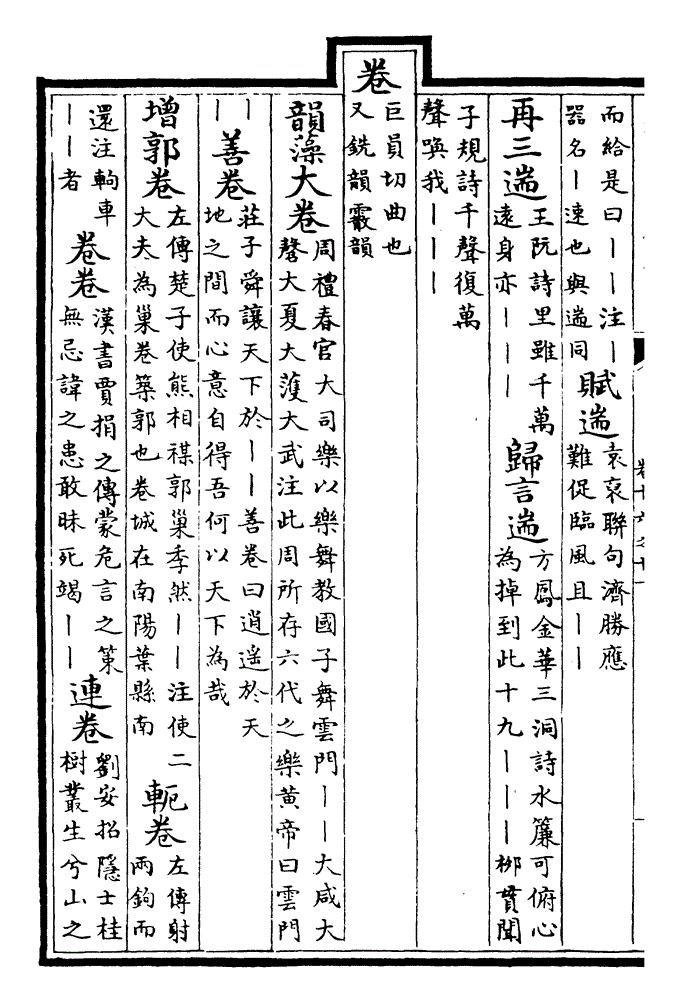 而給是曰丨丨注丨
器名丨速也與遄同
賦遄
袁裒聯句濟勝應
難促臨風且丨丨
再三遄
王阮詩里雖千萬
遠身亦丨丨丨
歸言遄
方鳳金華三洞詩水簾可俯心
為掉到此十九丨丨丨柳貫聞
子規詩千聲復萬
聲喚我丨丨丨
卷
巨員切曲也
又銑韻霰韻
韻藻大卷
周禮春官大司樂以樂舞教國子舞雲門丨丨大咸大
磬大夏大濩大武注此周所存六代之樂黄帝曰雲門
丨丨
善卷
莊子舜讓天下於丨丨善卷曰逍遥於天
地之間而心意自得吾何以天下為哉
增郭卷
左傳楚子使熊相禖郭巢季然丨丨注使二
大夫為巢卷築郭也卷城在南陽葉縣南
軛卷
左傳射
兩鉤而
還注軥車
丨丨者
卷卷
漢書賈捐之傳蒙危言之策
無忌諱之患敢昧死竭丨丨
連卷
劉安招隱士桂
樹叢生兮山之